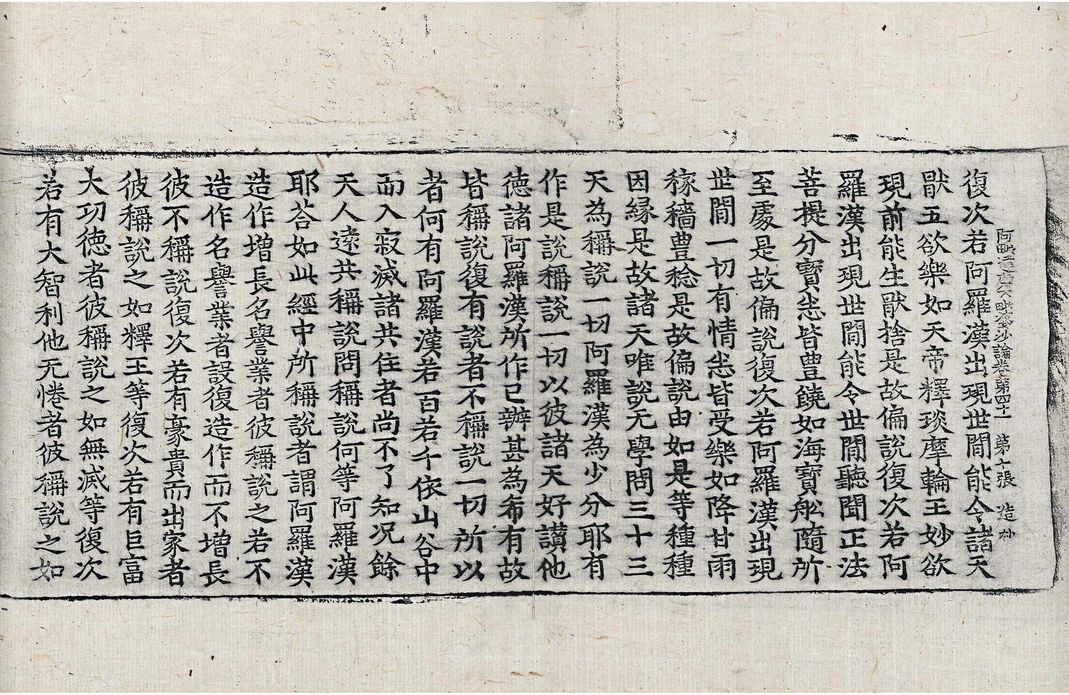 阿毗達磨大毗婆沙論卷第四十一 第七張 造
復次若阿羅漢出現世閒能令諸天
猒五欲樂如天帝釋琰摩輪王妙欲
現前能生猒捨是故偏說復次若阿
羅漢出現世閒能令世閒聽聞正法
菩提分寶悉皆豊饒如海寶舩隨所
至處是故偏說復次若阿羅漢出現
世閒一切有情悉皆受樂如降甘雨
稼穡豊稔是故偏說由如是等種種
因緣是故諸天唯說无學問三十三
天為稱說一切阿羅漢為少分耶有
作是說稱說一切以彼諸天好讃他
德諸阿羅漢所作已辦甚為希有故
皆稱說復有說者不稱說一切所以
者何有阿羅漢若百若千依山谷中
而入寂滅諸共住者尚不了知況餘
天人遠共稱說問稱說何等阿羅漢
耶荅如此經中所稱說者謂阿羅漢
造作增長名譽業者彼稱說之若不
造作名譽業者設復造作而不增長
彼不稱說復次若有豪貴而出家者
彼稱說之如釋王等復次若有巨富
大功德者彼稱說之如無滅等復次
若有大智利他无惓者彼稱說之如